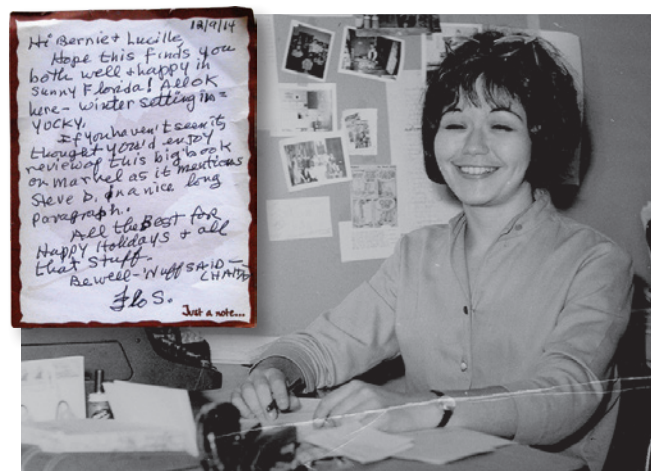 12/9/14
Hi Bernie + Lucille,
Hope this finds you
both well + happy in
sunny Florida! All OK
here - winter setting in =
YUCKY.
If you haven't seen it,
thought you'd enjoy
review of this big book
on Marvel as it mentions
Steve D. in a nice long
paragraph.
All the Best for
Happy Holidays + all
that stuff.
Be well - 'Nuff SAID -
Flo S.
Just a note...